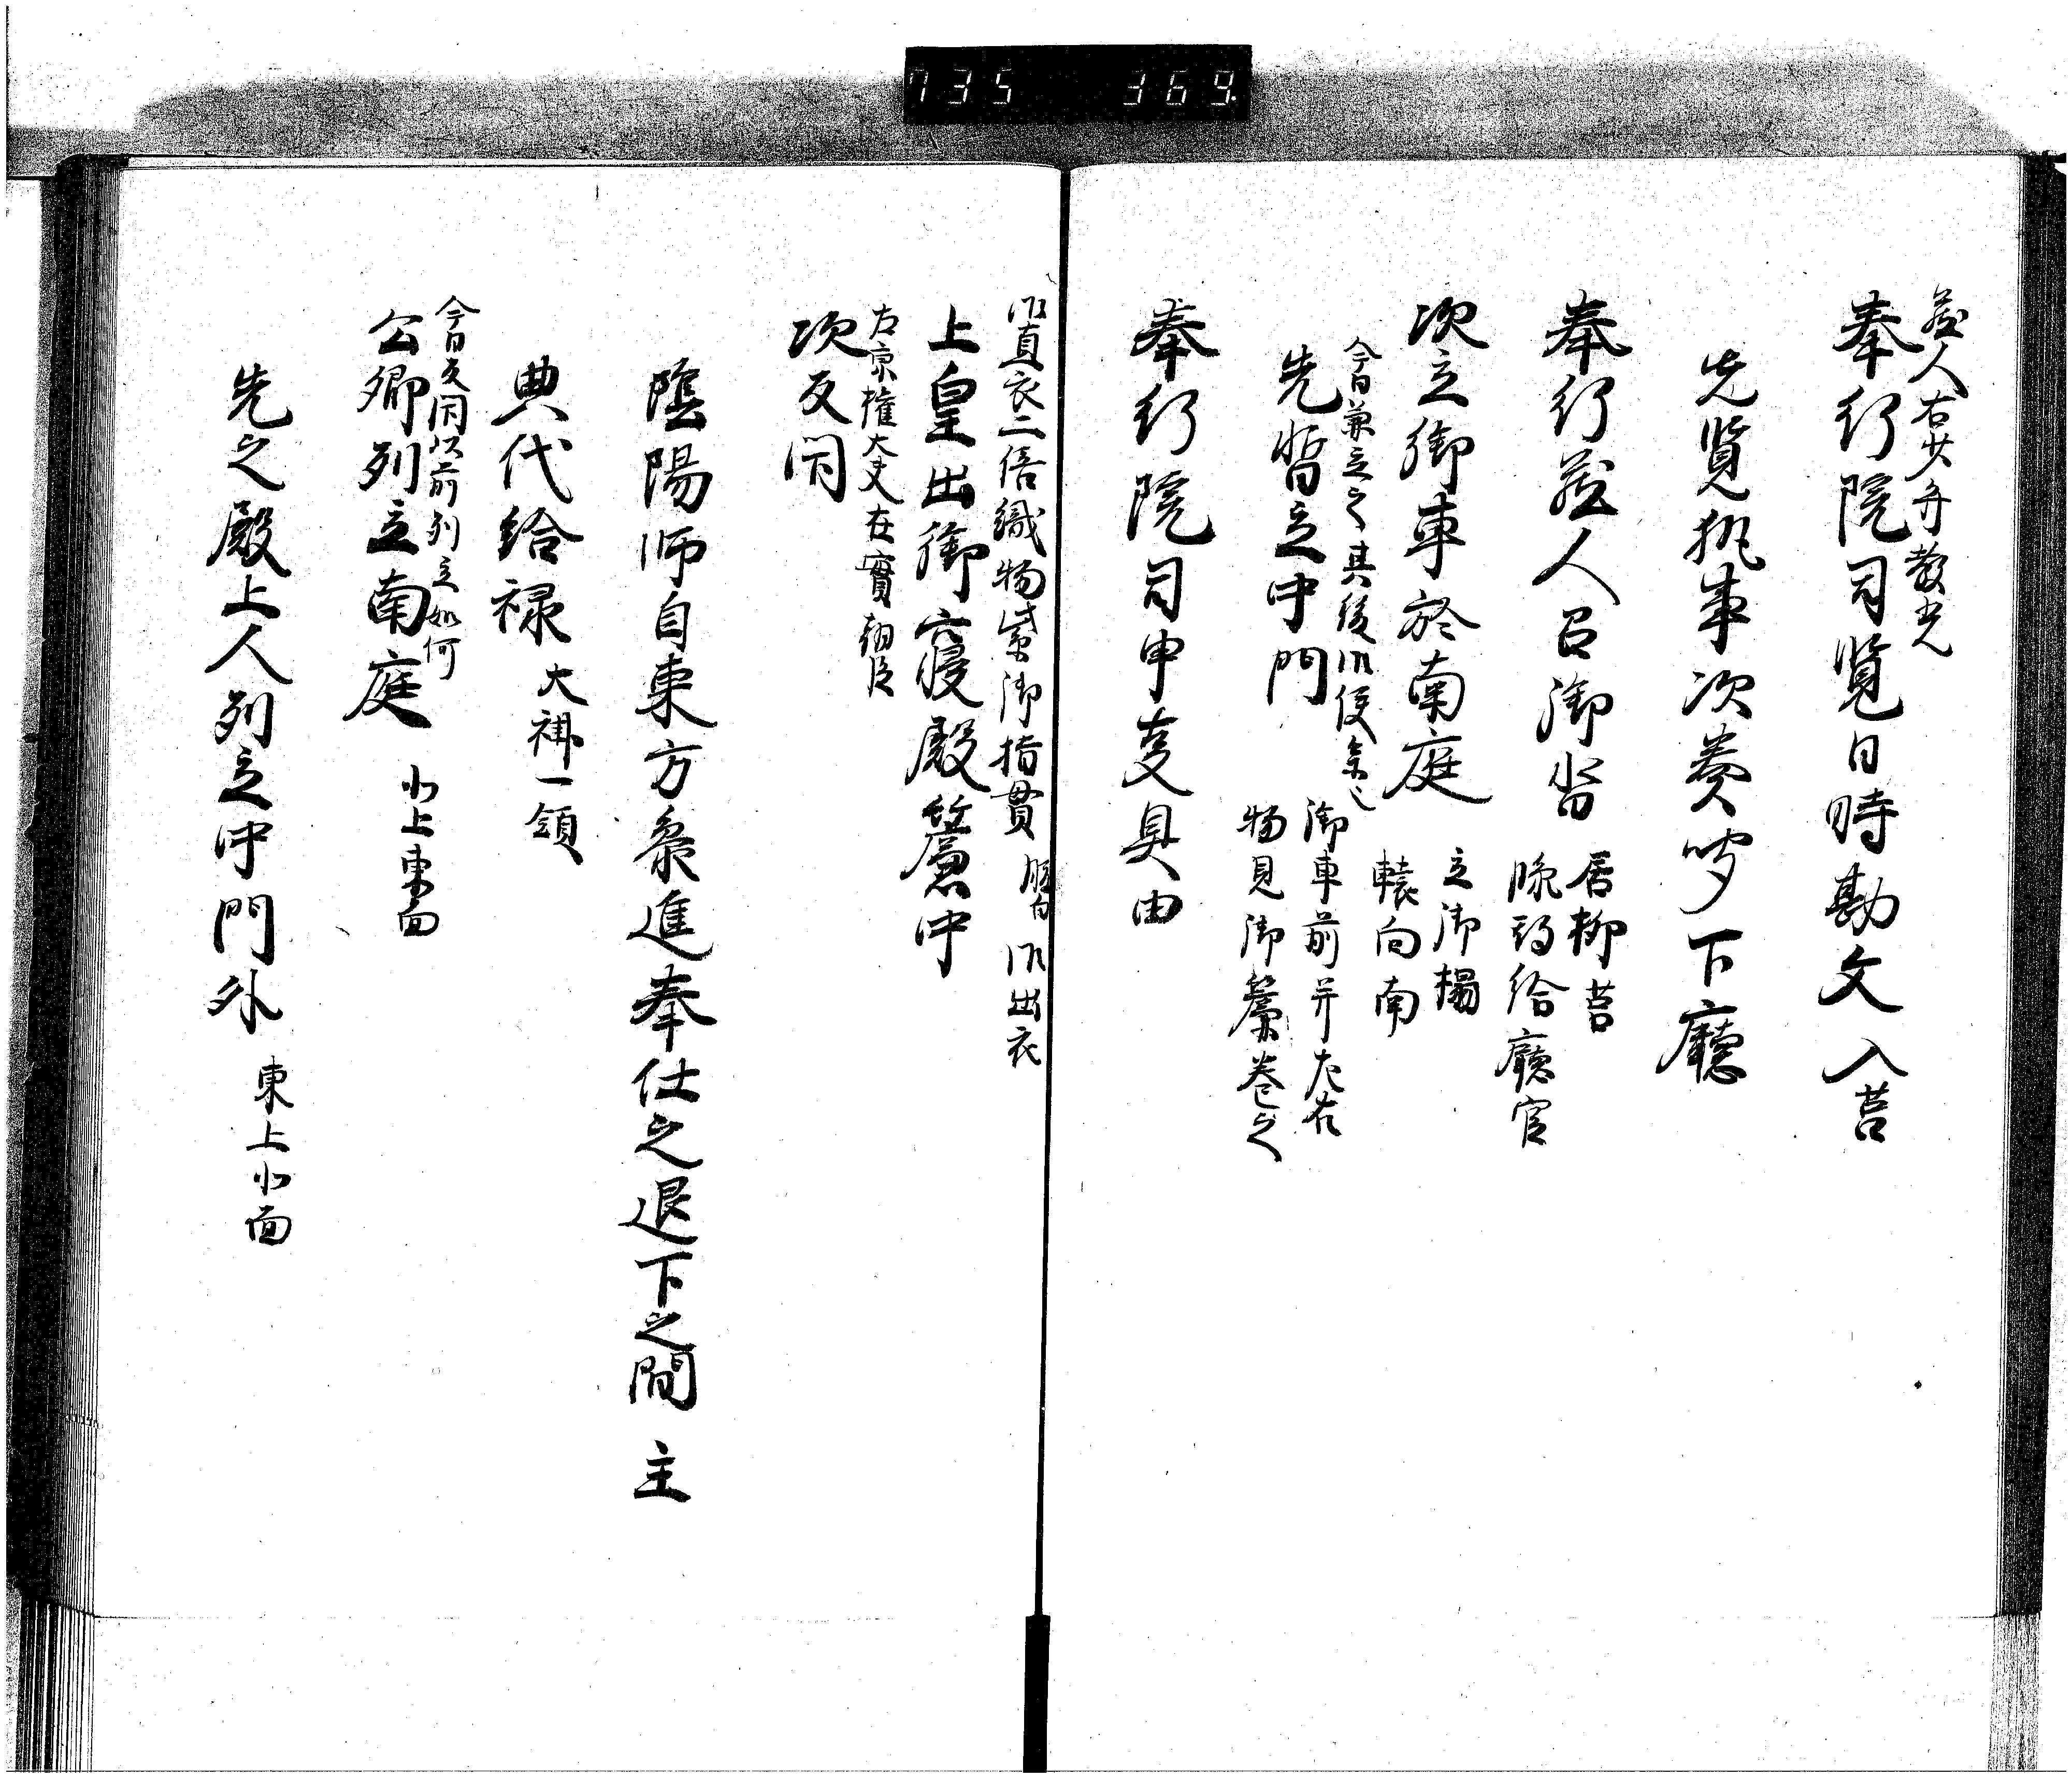 蔵人右少弁教光
奉行院司覧日時勘文入莒
先覧執事次奏聞下廳
奉行蔵人召御沓
居柳莒
脇給廳官
次立御車於南庭
立御榻
轅向南
今日兼立之其後御使参之
先暫立中門
御車前并左右
物見御簾巻之
奉行院司申事具由
御直衣二倍織物紫御指貫 御出衣
上皇出御寝殿簾中
右京権大夫在實朝臣
次反閇
陰陽師自東方参進奉仕之退下之間 主
典代給禄 大褂一領
今日反閇以前列立如何
公卿列立南庭 北上東面
先之殿上人列立中門外 東上北面
735 369